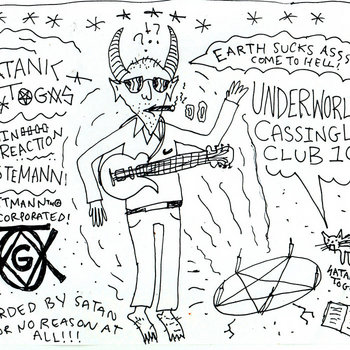 ATANIK
TOGAS
IN
REACTION
TEMANN!
TTMANN
CORPORATED!
G
RDED BY SATAN
OR NO REASON AT
ALL!!!
EARTH SUCKS ASSS
COME TO HELL!
UNDERWORL
CASSINGL
CLUB 10
SATA
TOG